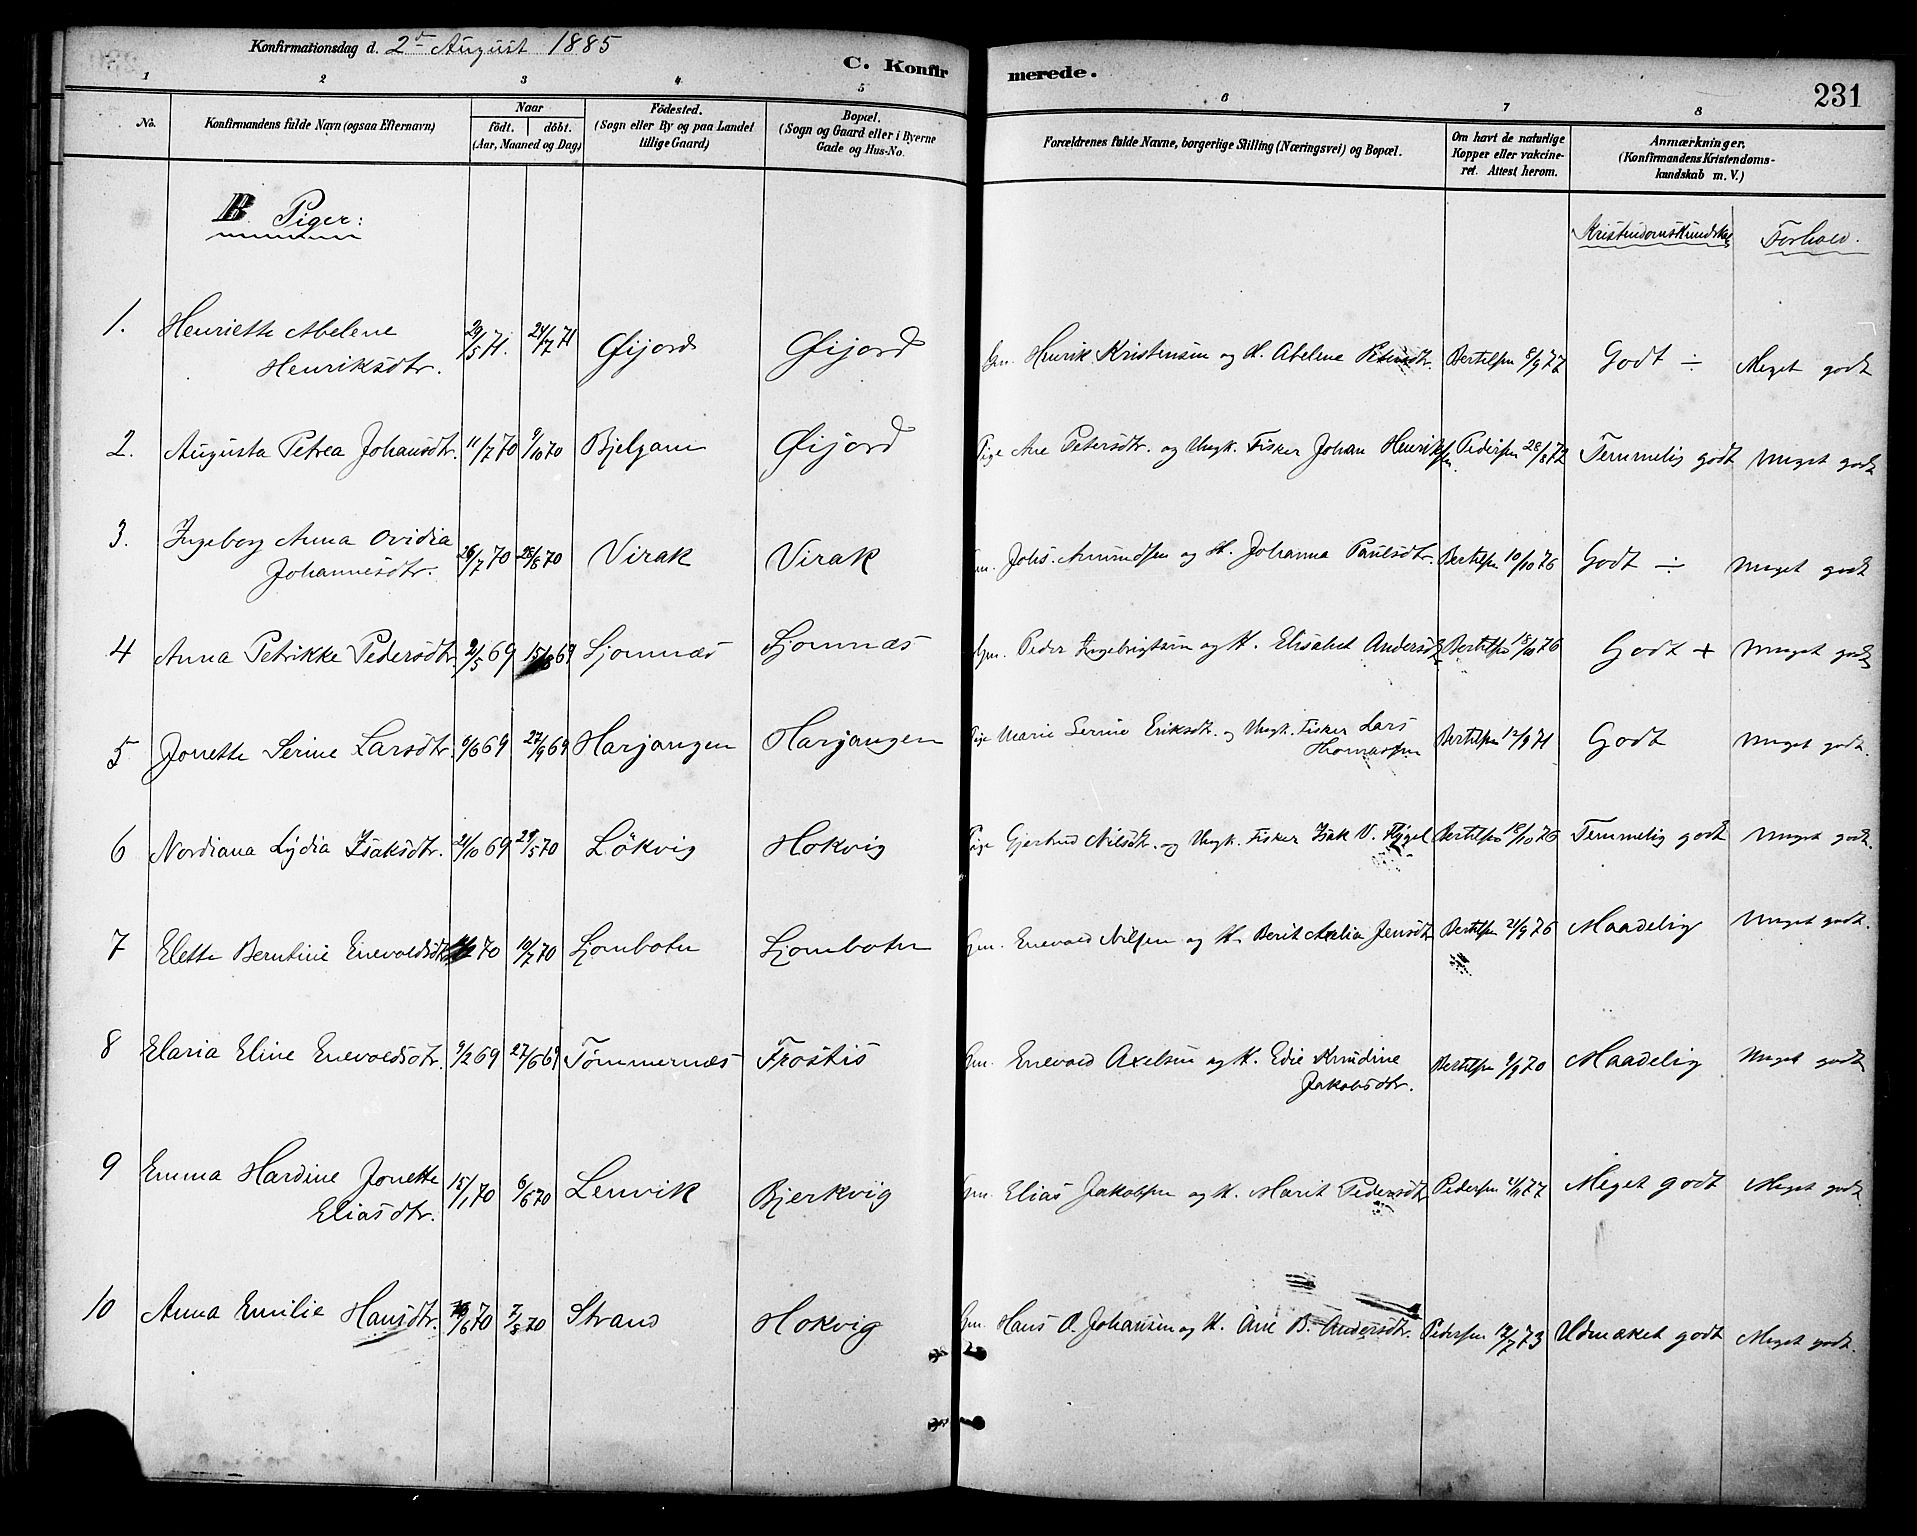 Konfirmationsdag d. 2den August 1885
C. Konfirmerede.
231
1 2 3 4 5 6 7 8
No.
Konfirmandens fulde Navn (ogsaa Efternavn)
Naar
födt. döbt.
(Aar, Maaned og Dag)
Födested.
(Sogn eller By og paa Landet
tillige Gaard)
Bopæl.
(Sogn og Gaard eller i Byerne
Gade og Hus-No.
Forældrenes fulde Navne, borgerlige Stilling (Næringsvei) og Bopæl.
Om havt de naturlige
Kopper eller vakcine-
ret. Attest herom.
Anmærkninger.
(Konfirmandens Kristendoms-
kundskab m. V.)
B. Piger:
Kristendomskundskab Forhold.
1. Henriette Abelene
Henriksdtr. 29/5 71. 24/7 71 Øijord Øijord Gm. Henrik Kristensen og H. Abelene Petersdtr. Bertelsen 8/9 77 Godt ÷ Meget godt
2. Augusta Petrea Johansdtr. 11/7 70 9/10 70 Bjelgam Øijord Pige Ane Petersdtr. og Ungk. Fisker Johan Henriksen Pedersen 28/8 72 Temmelig godt Meget godt
3. Ingeborg Anna Ovidia
Johannesdtr. 26/7 70 28/8 70 Virak Virak Gm. Johs. Amundsen og H. Johanna Paulsdtr. Bertelsen 10/10 76 Godt ÷ Meget godt
4 Anna Petrikke Pedersdtr. 2/5 69 15/8 69 Ljomnæs Ljomnæs Gm. Peder Ingebrigtsen og H. Elisabet Andersdtr Bertelsen 18/10 76 Godt + Meget godt
5 Jonette Serine Larsdtr. 9/6 69 27/9 69 Harjangen Harjangen Pige Marie Serine Eriksdt. og Ungk. Fisker Lars
Thomassen Bertelsen 12/9 71 Godt Meget godt.
6 Nordiana Lydia Isaksdtr. 21/10 69 29/5 70 Lökvig Hokvig Pige Gjertrud Nilsdtr. og Ungk. Fisker Isak N. Flygel Bertelsen 18/10 76 Temmelig godt Meget godt.
7 Elette Berntine Enevoldsdtr. 70 10/7 70 Ljombotn Ljombotn Gm. Enevold Nilsen og H. Berit Axelia Jensdtr Bertelsen 21/9 76 Maadelig Meget godt.
8 Elaria Eline Enevoldsdtr. 9/2 69 27/6 69 Tømmernæs Frostis Gm. Enevold Axelsen og H. Edie Knudine
Jakobsdtr. Bertelsen 9/9 70 Maadelig Meget godt
9 Emma Hardine Jonette
Eliasdtr. 15/1 70 6/6 70 Lenvik Bjerkvig Gm. Elias Jakobsen og H. Marit Pedersdtr Pedersen 77 Meget godt Meget godt
10 Anna Emilie Hansdtr. 70 7/8 70 Strand Hokvig Gm. Hans O. Johansen og H. Ane B. Andersdtr. Pedersen 12/7 73 Udmæket godt Meget godt.